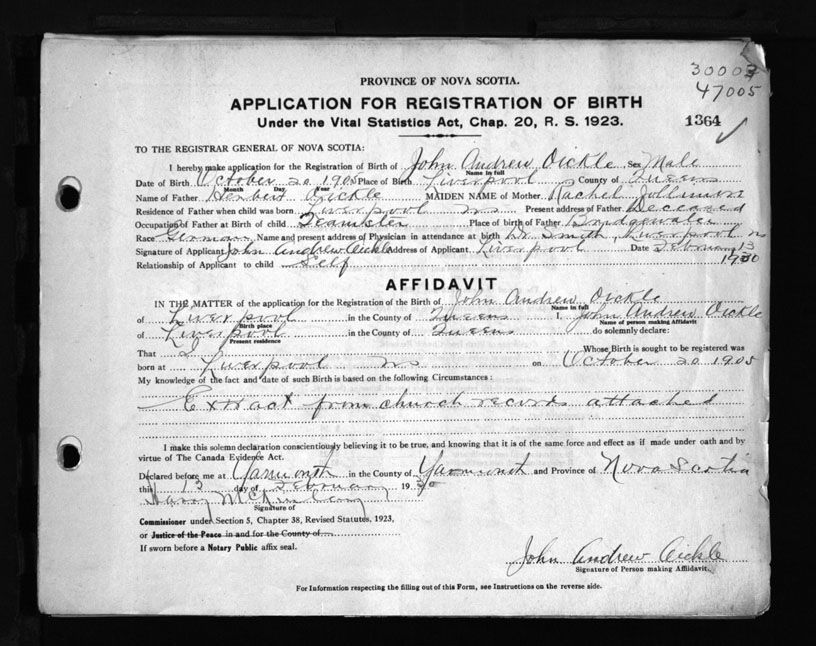 30003
47005
PROVINCE OF NOVA SCOTIA.
APPLICATION FOR REGISTRATION OF BIRTH
Under the Vital Statistics Act, Chap. 20, R. S. 1923.
1364
TO THE REGISTRAR GENERAL OF NOVA SCOTIA:
I hereby make application for the Registration of Birth of John Andrew Oickle Sex Male
Name in full
Date of Birth October 20 1905 Place of Birth Liverpool County of Queens
Month Day Year
Name of Father Herbert Oickle MAIDEN NAME of Mother Rachel
Residence of Father when child was born Liverpool NS Present address of Father Deceased
Occupation of Father at Birth of child Teamster Place of birth of Father Bridgewater
Race German Name and present address of Physician in attendance at birth Dr Smith, Liverpool NS
Signature of Applicant John Andrew Oickle Address of Applicant Liverpool Date February 13
Relationship of Applicant to child Self 1930
AFFIDAVIT
IN THE MATTER of the application for the Registration of the Birth of John Andrew Oickle
Name in full
of Liverpool in the County of Queens I, John Andrew Oickle
Birth place Name of person making Affidavit
of Liverpool in the County of Queens do solemnly declare:
Present residence
That I Whose Birth is sought to be registered was
born at Liverpool NS on October 20 1905
My knowledge of the fact and date of such Birth is based on the following Circumstances:
Extract from church records attached
I make this solemn declaration conscientiously believing it to be true, and knowing that it is of the same force and effect as if made under oath and by
virtue of The Canada Evidence Act.
Declared before me at Yarmouth in the County of Yarmouth and Province of Nova Scotia
this 13 day of February 1930
Harry
Signature of
Commissioner under Section 5, Chapter 38, Revised Statutes, 1923,
or Justice of the Peace in and for the County of
If sworn before a Notary Public affix seal.
John Andrew Oickle
Signature of Person making Affidavit.
For Information respecting the filling out of this Form, see Instructions on the reverse side.